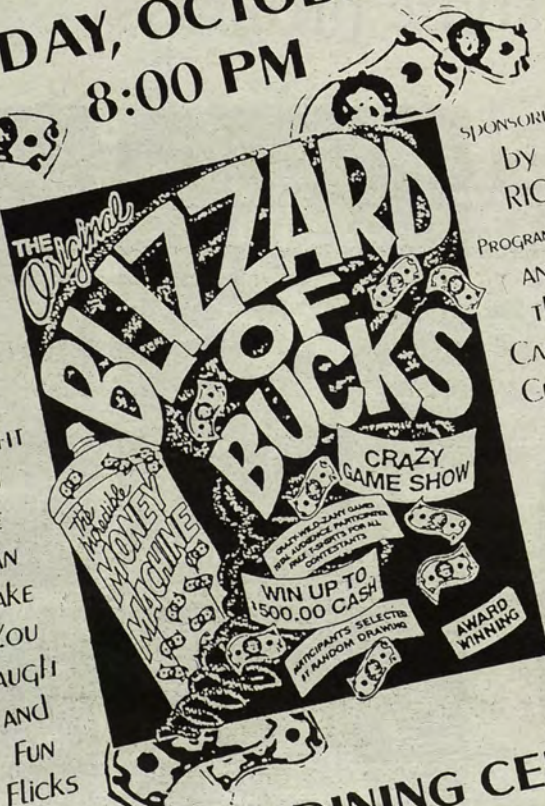 DAY, OCTO
8:00 PM
SPONSORE
by
RIC
PROGRAM
AN
CA
THE
Original
BLIZZARD
OF
BUCKS
CRAZY
GAME SHOW
The
Incredible
MONEY
MACHINE
CRAZY-WILD-ZANY GAMES
AUDIENCE PARTICIPATION
FREE T-SHIRTS FOR ALL
CONTESTANTS
WIN UP TO
$500.00 CASH
PARTICIPANTS SELECTED
BY RANDOM DRAWING
AWARD
WINNING
HIT
AN
AKE
YOU
AUGH
AND
FUN
Flicks
DINING CE